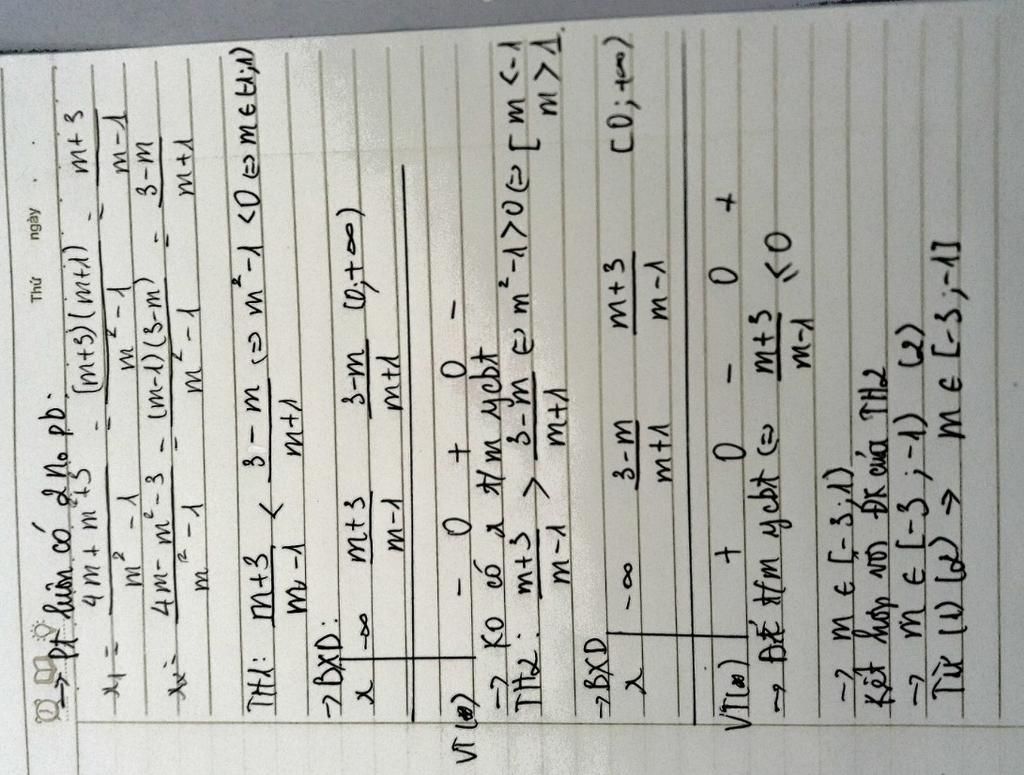 Thứ ngày
→ Pt luôn có 2 no pb.
x₁ = (4m + m² + 3)/(m² - 1) = (m+3)(m+1)/(m² - 1) = (m+3)/(m-1)
x₂ = (4m - m² - 3)/(m² - 1) = (m-1)(3-m)/(m² - 1) = (3-m)/(m+1)
TH1: (m+3)/(m-1) < (3-m)/(m+1) ⇔ m² - 1 < 0 ⇔ m ∈ (-1;1)
→ BXD
x -∞ (m+3)/(m-1) (3-m)/(m+1) (0;+∞)
VT - 0 + 0 -
→ Ko có x t/m ycbt
TH2: (m+3)/(m-1) > (3-m)/(m+1) ⇔ m² - 1 > 0 ⇔ [ m < -1
m > 1.
→ BXD
x -∞ (3-m)/(m+1) (m+3)/(m-1) [0;+∞)
VT + 0 - 0 +
→ Để t/m ycbt ⇔ (m+3)/(m-1) ≤ 0
→ m ∈ [-3;1)
Kết hợp với ĐK của TH2
→ m ∈ [-3;-1) (2)
Từ (1) (2) → m ∈ [-3;-1]